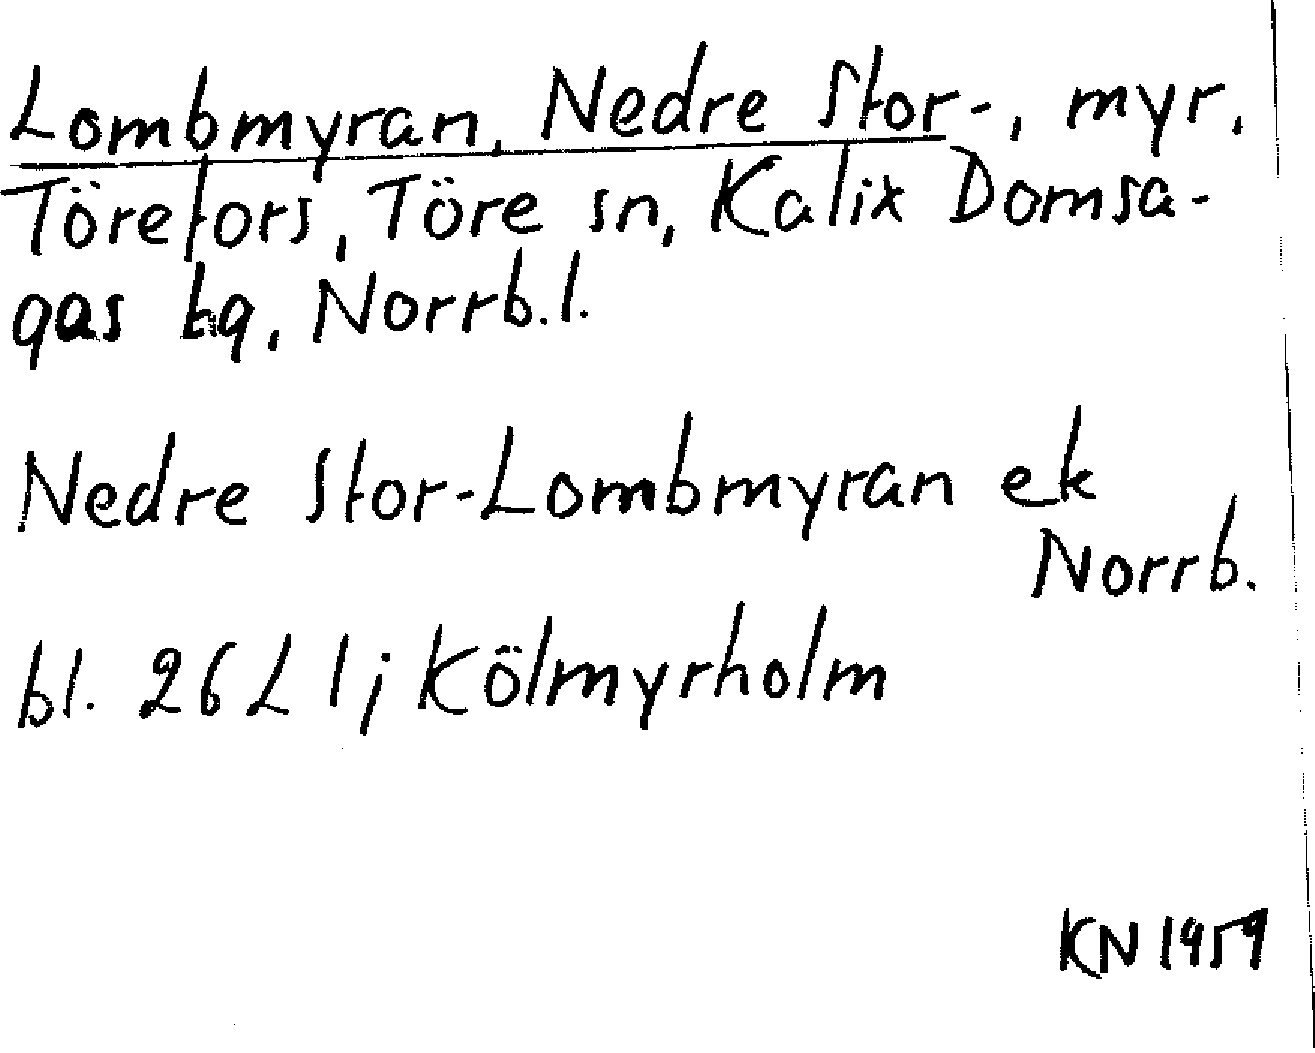 Lombmyran, Nedre Stor-, myr,
Törefors, Töre sn, Kalix Domsa-
gas tg, Norrb.l.
Nedre Stor-Lombmyran ek
Norrb.
bl. 26 L 1j Kölmyrholm
KN 1959